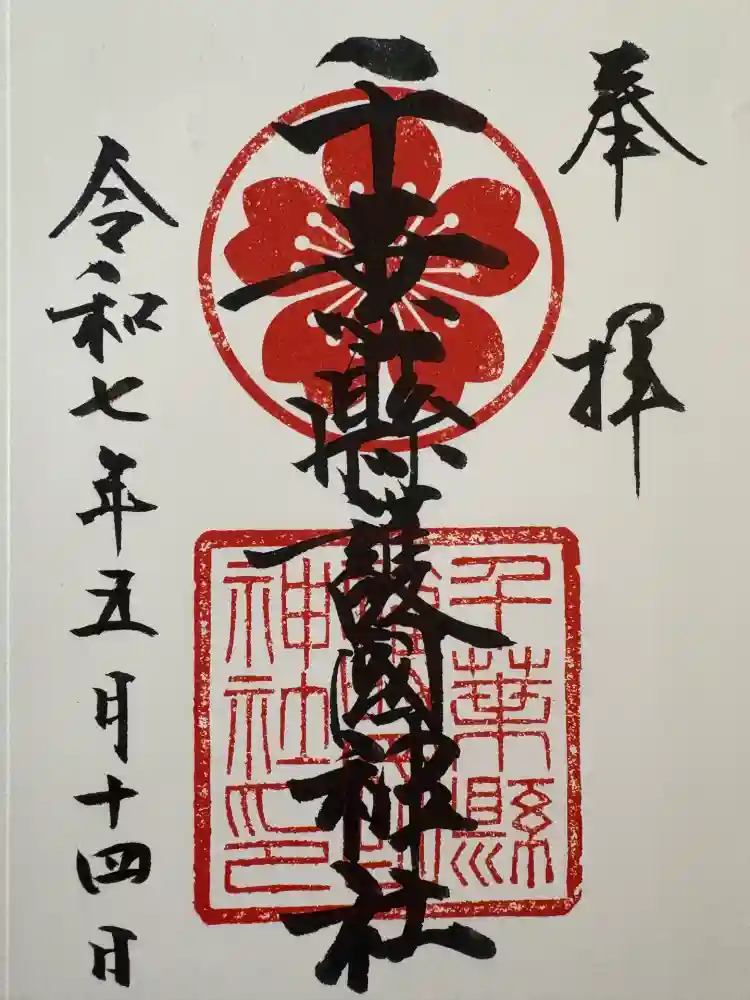 奉拝
千葉縣護國神社
令和七年五月十四日
千葉縣
神社印